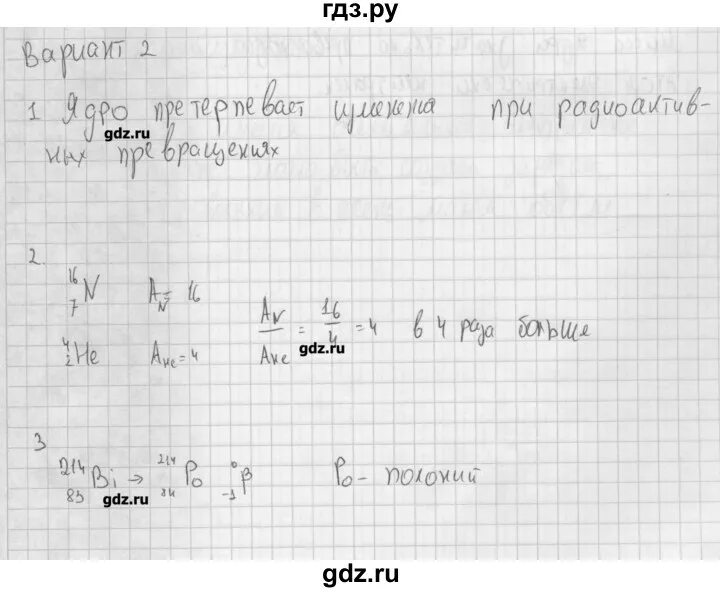 гдз.ру
Вариант 2
1 Ядро претерпевает изменена при радиоактив-
gdz.ru
ных превращениях
2.
16 7 N A N = 16 A N / A He = 16 / 4 = 4 в 4 раза больше
4 2 He A He = 4
gdz.ru
3
214 83 Bi → 214 84 Po 0 -1 β Po - полоний
gdz.ru
gdz.ru